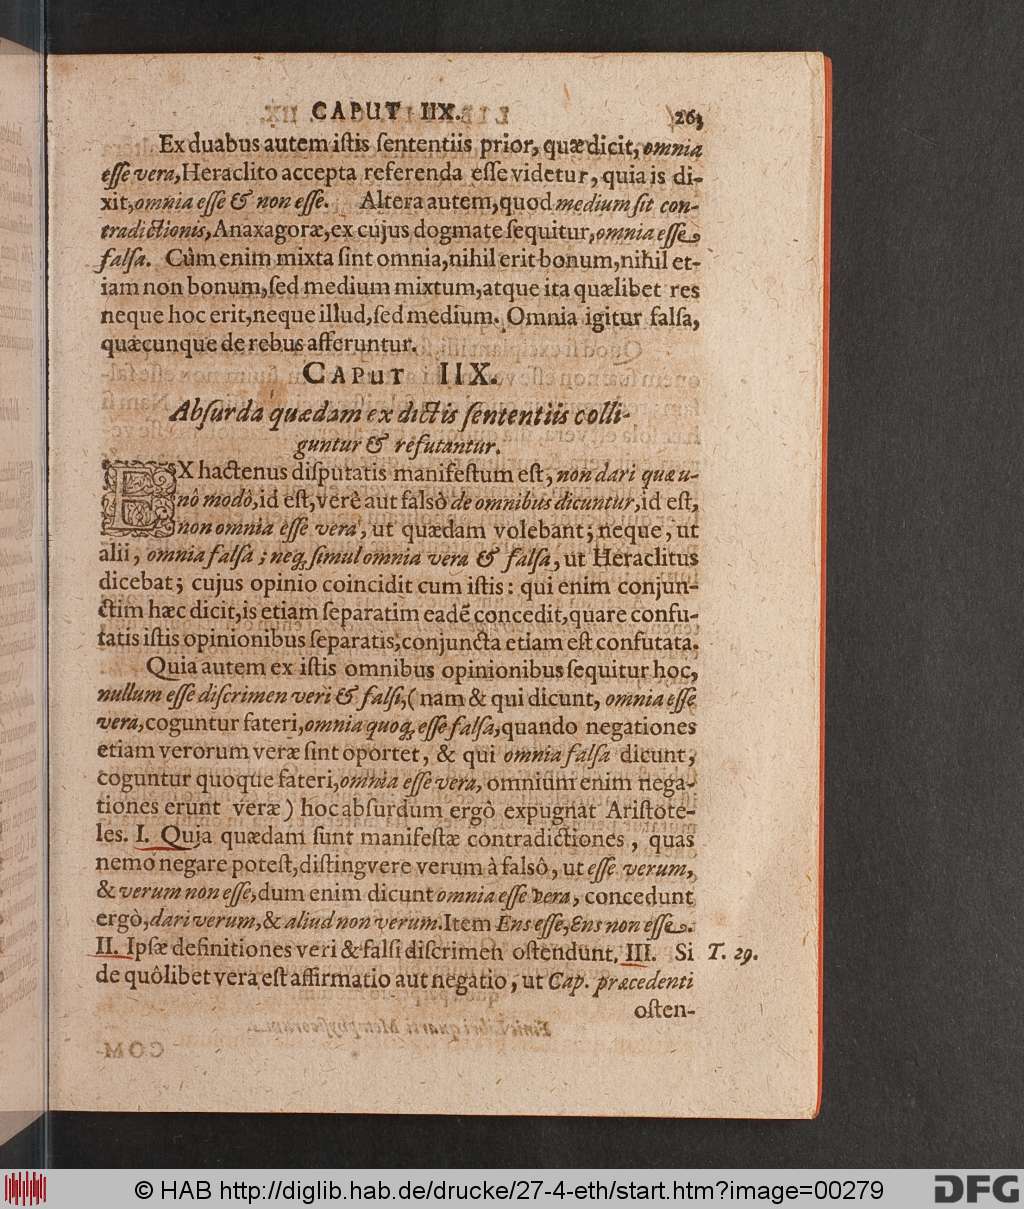 CAPUT IIX. 263
Ex duabus autem iſtis ſententiis prior, quæ dicit, omnia
eſſe vera, Heraclito accepta referenda eſſe videtur, quia is di-
xit, omnia eſſe & non eſſe. Altera autem, quod medium ſit con-
tradictionis, Anaxagoræ, ex cujus dogmate ſequitur, omnia eſſe
falſa. Cùm enim mixta ſint omnia, nihil erit bonum, nihil et-
iam non bonum, ſed medium mixtum, atque ita quælibet res
neque hoc erit, neque illud, ſed medium. Omnia igitur falſa,
quæcunque de rebus afferuntur.
CAPUT IIX.
Abſurda quædam ex dictis ſententiis colli-
guntur & refutantur.
EX hactenus diſputatis manifeſtum eſt, non dari quæ u-
nô modô, id eſt, verè aut falsò de omnibus dicuntur, id eſt,
non omnia eſſe vera, ut quædam volebant; neque, ut
alii, omnia falſa; neq; ſimul omnia vera & falſa, ut Heraclitus
dicebat; cujus opinio coincidit cum iſtis: qui enim conjun-
ctim hæc dicit, is etiam ſeparatim eadē concedit, quare confu-
tatis iſtis opinionibus ſeparatis, conjuncta etiam eſt confutata.
Quia autem ex iſtis omnibus opinionibus ſequitur hoc,
nullum eſſe diſcrimen veri & falſi, (nam & qui dicunt, omnia eſſe
vera, coguntur fateri, omnia quoq; eſſe falſa, quando negationes
etiam verorum veræ ſint oportet, & qui omnia falſa dicunt,
coguntur quoque fateri, omnia eſſe vera, omnium enim nega-
tiones erunt veræ) hoc abſurdum ergò expugnat Ariſtote-
les. I. Quia quædam ſunt manifeſtæ contradictiones, quas
nemo negare poteſt, diſtingvere verum à falsô, ut eſſe verum,
& verum non eſſe, dum enim dicunt omnia eſſe vera, concedunt
ergò, dari verum, & aliud non verum. Item Ens eſſe, Ens non eſſe.
II. Ipſæ definitiones veri & falſi diſcrimen oſtendunt. III. Si T. 29.
de quôlibet vera eſt affirmatio aut negatio, ut Cap. præcedenti
oſten-
© HAB http://diglib.hab.de/drucke/27-4-eth/start.htm?image=00279
DFG